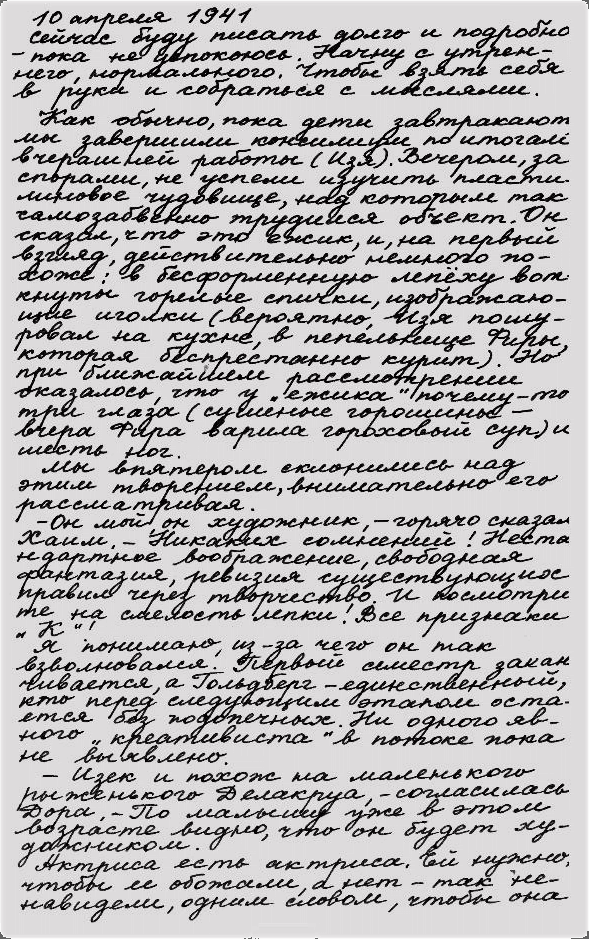 10 апреля 1941
Сейчас буду писать долго и подробно
- пока не успокоюсь. Начну с утрен-
него, нормального. Чтобы взять себя
в руки и собраться с мыслями.
Как обычно, пока дети завтракают
мы завершили консилиум по итогам
вчерашней работы (Изя). Вечером, за
спорами, не успели изучить пласти-
линовое чудовище, над которым так
самозабвенно трудился объект. Он
сказал, что это ёжик, и, на первый
взгляд, действительно немного по-
хоже: в бесформенную лепёху вот-
кнуты горелые спички, изображаю-
щие иголки (вероятно, Изя пошу-
ровал на кухне, в пепельнице Фиры,
которая беспрестанно курит). Но
при ближайшем рассмотрении
оказалось, что у „ежика" почему-то
три глаза (сушеные горошины —
вчера Фира варила гороховый суп) и
шесть ног.
Мы впятером склонились над
этим творением, внимательно его
рассматривая.
- Он мой, он художник, - горячо сказал
Хаим. - Никаких сомнений! Неста
ндартное воображение, свободная
фантазия, ревизия существующих
правил через творчество. И посмотри
те на смелость лепки! Все признаки
„К"!
Я понимаю, из-за чего он так
взволновался. Первый семестр закан
чивается, а Гольдберг - единственный,
кто перед следующим этапом оста-
ется без подопечных. Ни одного яв-
ного „креативиста" в потоке пока
не выявлено.
- Изек и похож на маленького
рыженького Делакруа, - согласилась
Дора. - По малышу уже в этом
возрасте видно, что он будет ху-
дожником.
Актриса есть актриса. Ей нужно,
чтобы ее обожали, а нет - так не-
навидели, одним словом, чтобы она